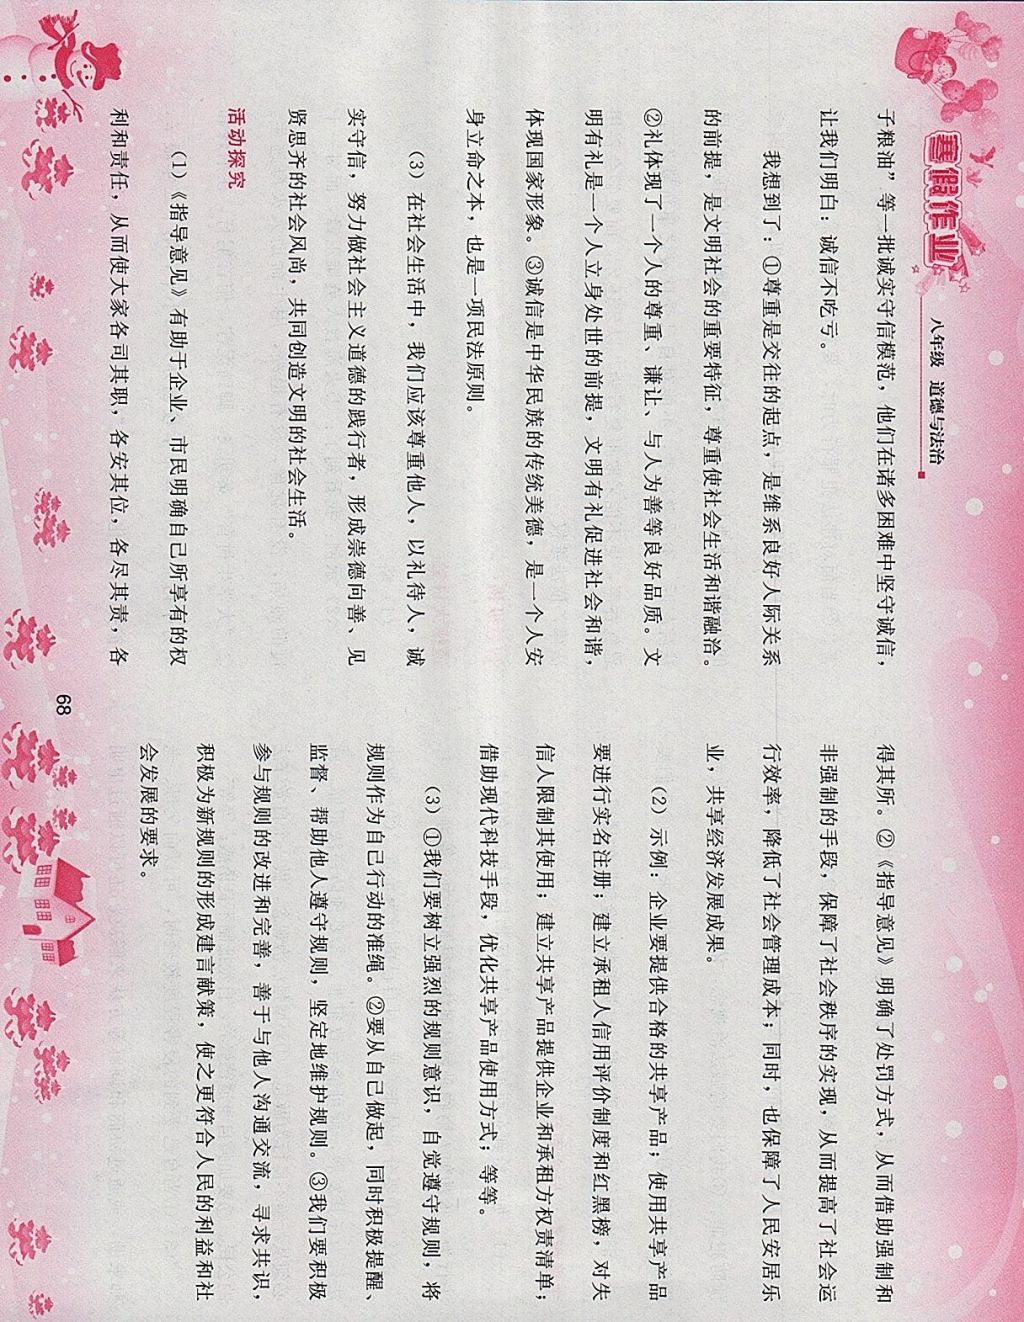 寒假作业
八年级 道德与法治
子粮油”等一批诚实守信模范，他们在诸多困难中坚守诚信，
让我们明白：诚信不吃亏。
我想到了：①尊重是交往的起点，是维系良好人际关系
的前提，是文明社会的重要特征，尊重使社会生活和谐融洽。
②礼体现了一个人的尊重、谦让、与人为善等良好品质。文
明有礼是一个人立身处世的前提，文明有礼促进社会和谐，
体现国家形象。③诚信是中华民族的传统美德，是一个人安
身立命之本，也是一项民法原则。
（3）在社会生活中，我们应该尊重他人，以礼待人，诚
实守信，努力做社会主义道德的践行者，形成崇德向善、见
贤思齐的社会风尚，共同创造文明的社会生活。
活动探究
（1）《指导意见》有助于企业、市民明确自己所享有的权
利和责任，从而使大家各司其职，各安其位，各尽其责，各
得其所。②《指导意见》明确了处罚方式，从而借助强制和
非强制的手段，保障了社会秩序的实现，从而提高了社会运
行效率，降低了社会管理成本；同时，也保障了人民安居乐
业，共享经济发展成果。
（2）示例：企业要提供合格的共享产品；使用共享产品
要进行实名注册；建立承租人信用评价制度和红黑榜，对失
信人限制其使用；建立共享产品提供企业和承租方权责清单；
借助现代科技手段，优化共享产品使用方式；等等。
（3）①我们要树立强烈的规则意识，自觉遵守规则，将
规则作为自己行动的准绳。②要从自己做起，同时积极提醒、
监督、帮助他人遵守规则，坚定地维护规则。③我们要积极
参与规则的改进和完善，善于与他人沟通交流，寻求共识，
积极为新规则的形成建言献策，使之更符合人民的利益和社
会发展的要求。
68